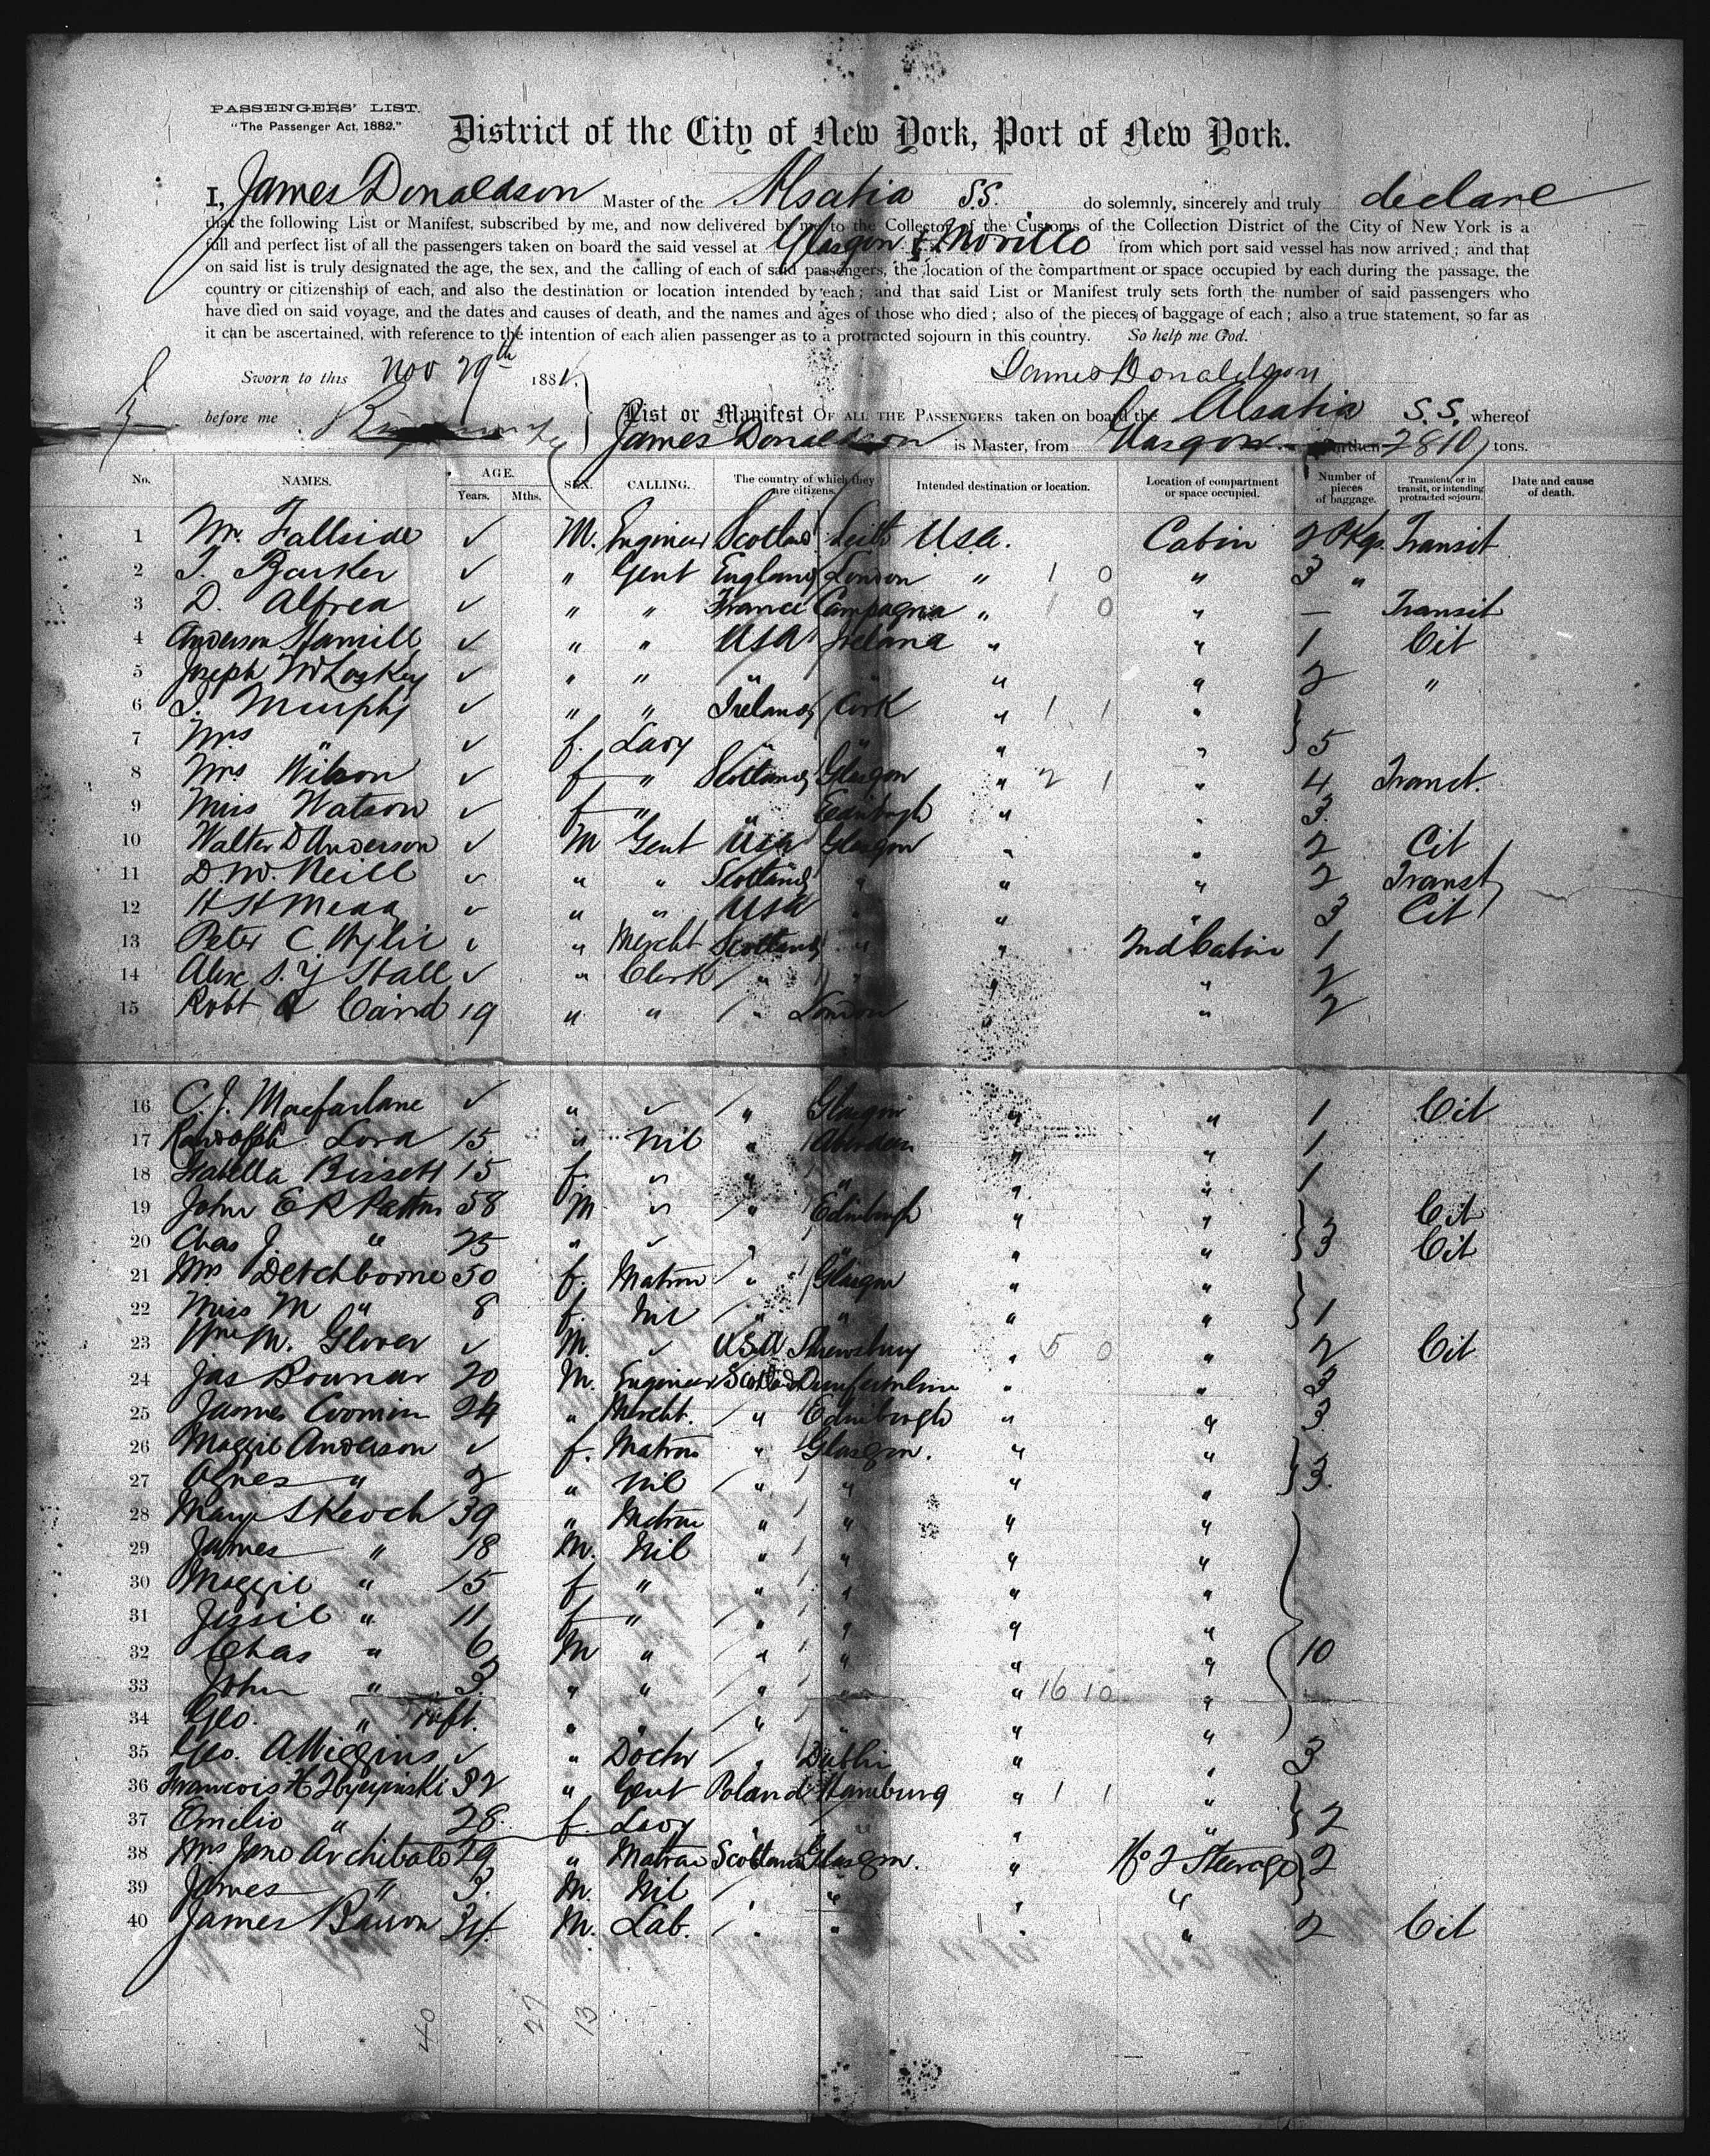 PASSENGERS' LIST.
"The Passenger Act, 1882."
District of the City of New York, Port of New York.
I, James Donaldson Master of the Alsatia S.S. do solemnly, sincerely and truly declare
that the following List or Manifest, subscribed by me, and now delivered by me to the Collector of the Customs of the Collection District of the City of New York is a
full and perfect list of all the passengers taken on board the said vessel at Glasgow & Moville from which port said vessel has now arrived; and that
on said list is truly designated the age, the sex, and the calling of each of said passengers, the location of the compartment or space occupied by each during the passage, the
country or citizenship of each, and also the destination or location intended by each; and that said List or Manifest truly sets forth the number of said passengers who
have died on said voyage, and the dates and causes of death, and the names and ages of those who died; also of the pieces of baggage of each; also a true statement, so far as
it can be ascertained, with reference to the intention of each alien passenger as to a protracted sojourn in this country. So help me God.
Sworn to this Nov 29th 188
James Donaldson
before me
List or Manifest OF ALL THE PASSENGERS taken on board the Alsatia S.S. whereof
James Donaldson is Master, from Glasgow burthen 2810 tons.
No. NAMES. AGE. Years. Mths. SEX. CALLING. The country of which they are citizens. Intended destination or location. Location of compartment or space occupied. Number of pieces of baggage. Transient, or in transit, or intending protracted sojourn. Date and cause of death.
1 Mr. Fallside ✓ M. Engineer Scotland Leith U.S.A. Cabin 2 Pkgs. Transit
2 T. Barker ✓ " Gent England London " 1 0 " 3 "
3 D. Alfrea ✓ " " France Campagnia " 1 0 " — Transit
4 Anderson Hamill ✓ " " USA Ireland " " 1 Cit
5 Joseph McLoskey ✓ " " " " " " 2 "
6 J. Murphy ✓ " " Ireland Cork " 1 1 "
7 Mrs " ✓ f. Lady " " " " 5
8 Mrs Wilson ✓ f " Scotland Glasgow " 2 1 " 4 Transt.
9 Miss Watson ✓ f " " Edinburgh " " 3
10 Walter D Anderson ✓ M Gent USA Glasgow " " 2 Cit
11 D. W. Neill ✓ " " Scotland " " " 2 Transt
12 H H ✓ " " USA " " " 3 Cit
13 Peter C Wylie ✓ " Mercht Scotland " " 2nd Cabin 1
14 Alex S. Y Stall ✓ " Clerk " " " " 2
15 Robt Caird 19 " " " London " " 2
16 C. J. Macfarlane ✓ " ✓ " Glasgow " " 1 Cit
17 Randolph Lora 15 " Nil " Aberdeen " " 1
18 Isabella Bissett 15 f. " " " " " 1
19 John E R Patton 58 M " " Edinburgh " " Cit
20 Chas J. " 25 " " " " " " 3 Cit
21 Mrs Detchborne 50 f. Matron " Glasgow " "
22 Miss M " 8 f. Nil " " " " 1
23 Wm M. Glover ✓ M. ✓ USA Shrewsbury " 5 0 " 2 Cit
24 Jas Bounar 20 M. Engineer Scotland Dunfermline " " 3
25 James Coomin 24 " Mercht. " Edinburgh " " 3
26 Maggie Anderson ✓ f. Matron " Glasgow. " "
27 Agnes " 2 " Nil " " " " 3.
28 Mary Skeoch 39 " Matron " " " "
29 James " 18 M. Nil " " " "
30 Maggie " 15 f " " " " "
31 Jessie " 11 f " " " " "
32 Chas " 6 M " " " " " 10
33 John " 3 " " " " " 16 10 "
34 Geo. " Inft. " " " " " "
35 Geo. A Wiggins ✓ " Doctor " Dublin " " 3
36 Francois H 32 " Gent Poland Hamburg " 1 1 "
37 Emilio " 28. f. Lady " " " " 2
38 Mrs Jane Archibald 29 " Matron Scotland Glasgow. " No 2 Steerage 2
39 James " 3. M. Nil " " "
40 James Barron 34 M. Lab. " " " " 2 Cit
40 27 13